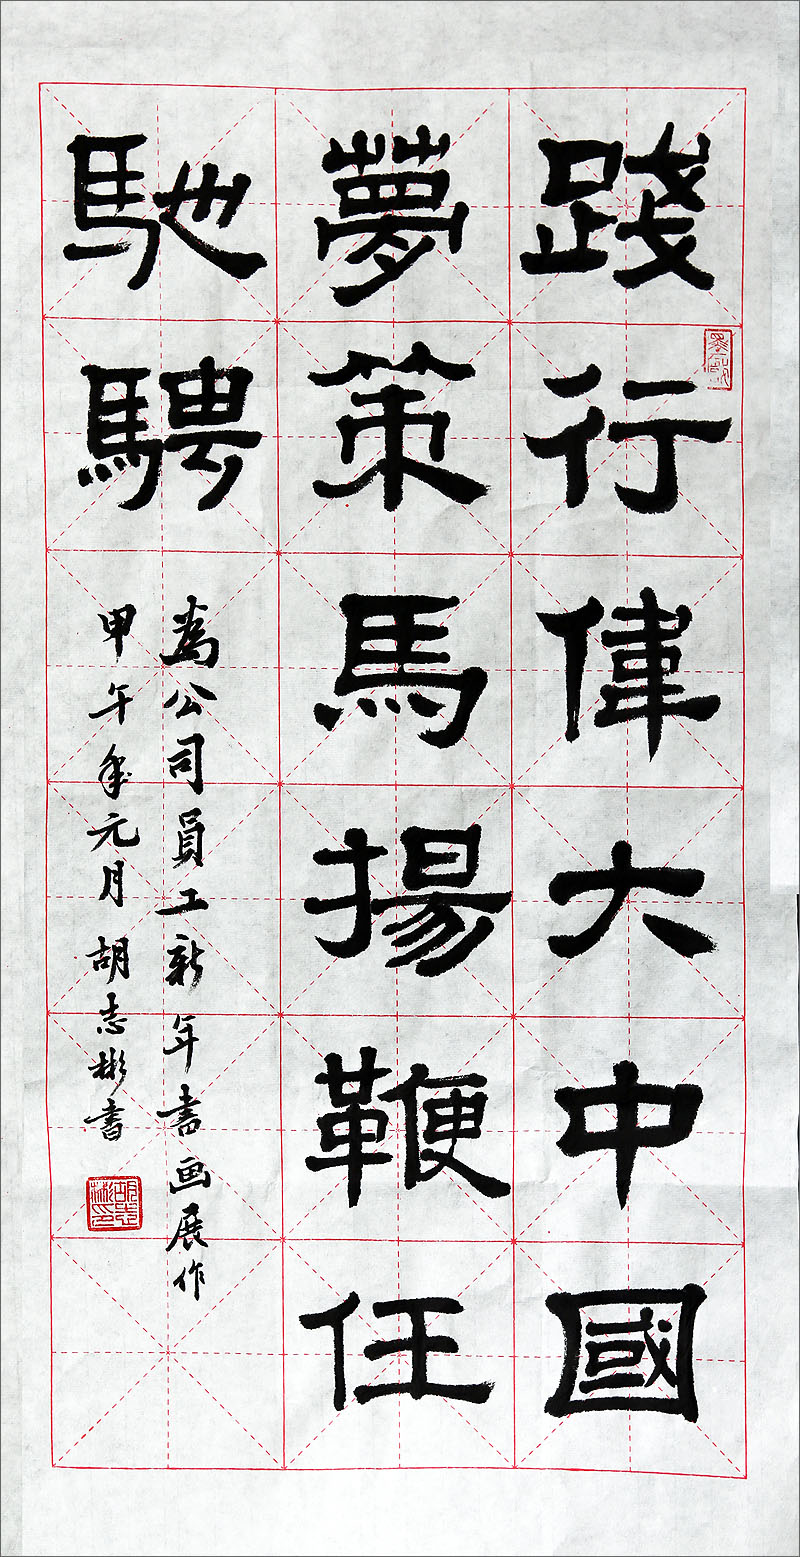 踐行偉大中國
夢策馬揚鞭任
馳騁
為公司員工新年書画展作
甲午年元月胡志彬書
胡志彬印